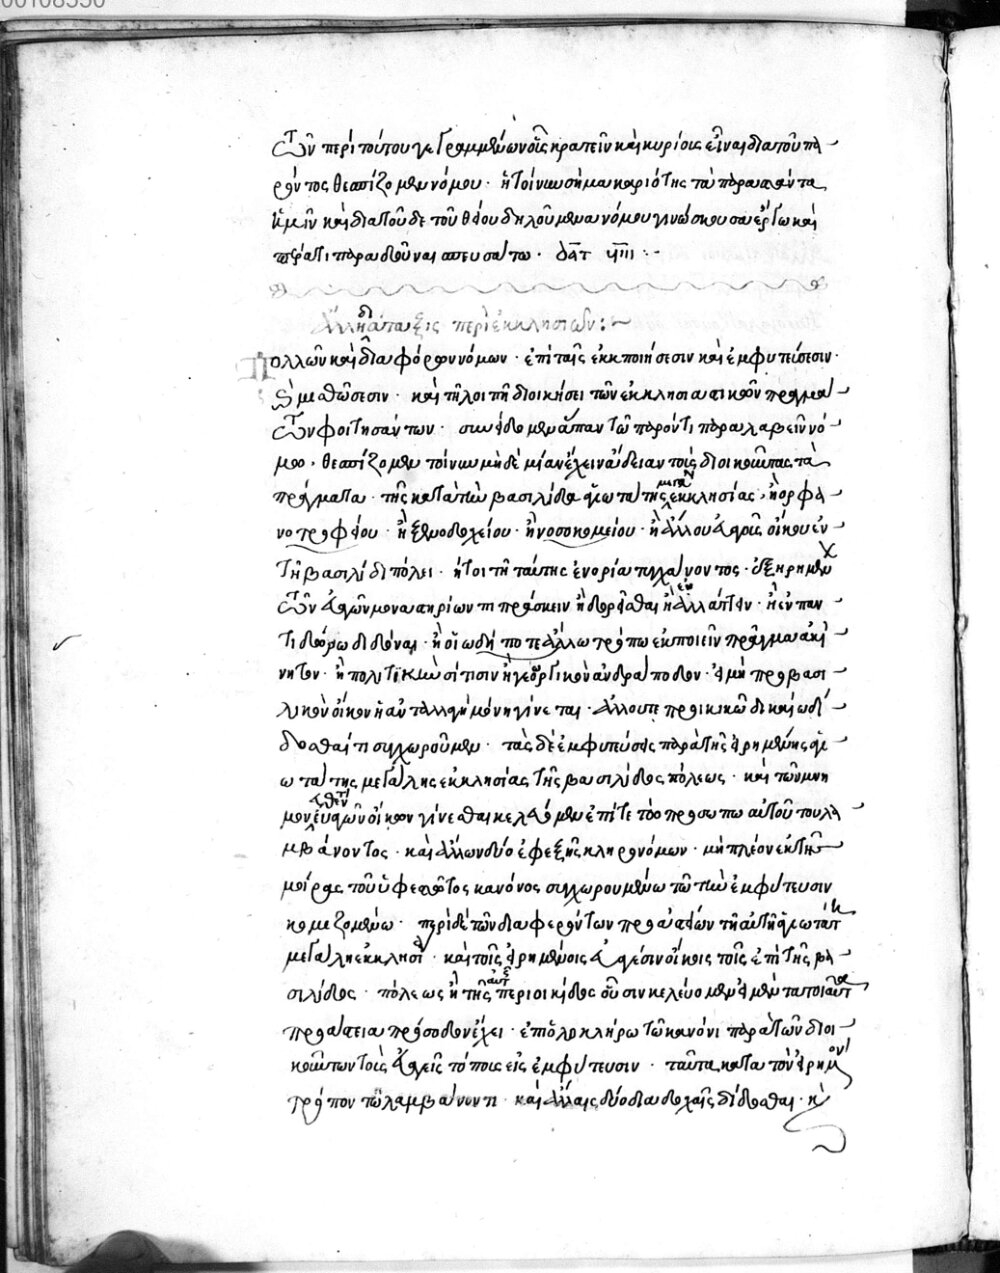 τῶν περὶ τούτου γεγραμμένων οἷς κρατεῖν καὶ κυρίοις εἶναι διὰ τοῦ πα
ρόντος θεσπίζομεν νόμου · ἡ τοίνυν σὴ μακαριότης τὰ παραστάντα
ἡμῖν καὶ διὰ τοῦδε τοῦ θείου δηλούμενα νόμου γινώσκουσα ἔργω καὶ
πέρατι παραδοῦναι σπευσάτω ·
Ἄλλη διάταξις περὶ ἐκκλησιῶν :~
Πολλῶν καὶ διαφόρων νόμων · ἐπὶ ταῖς ἐκποιήσεσιν καὶ ἐμφυτεύσεσιν ·
μισθώσεσιν · καὶ τῆ λοιπῆ διοικήσει τῶν ἐκκλησιαστικῶν πραγμά
των φοιτησάντων · συνείδομεν ἅπαν τῶ παρόντι παραλαβεῖν νό
μω · θεσπίζομεν τοίνυν μηδεμίαν ἔχειν ἄδειαν τοὺς διοικοῦντας τὰ
πράγματα · τῆς κατὰ τὴν βασιλίδα ἁγιωτάτης μεγάλης ἐκκλησίας · ἢ ὀρφα
νοτροφείου · ἢ ξενοδοχείου · ἢ νοσοκομείου · ἢ ἄλλου εὐαγοῦς οἴκου ἐν
τῆ βασιλίδι πόλει · ἤτοι τῆ ταύτης ἐνορία τυγχάνοντος · ἐξηρημέν
τῶν εὐαγῶν μοναστηρίων πιπράσκειν ἢ δωρεῖσθαι ἢ ἀλλάττειν · ἢ ἐν παν
τὶ δώρω διδόναι · ἢ οἱωδήποτε ἄλλω τρόπω ἐκποιεῖν πρᾶγμα ἀκί
νητον · ἢ πολιτικὴν σίτισιν ἢ γεωργικὸν ἀνδράποδον · εἰ μὴ πρὸς βασι
λικὸν οἶκον ἡ ἀνταλλαγὴ μόνη γίνεται · ἄλλο
δοσθαί τι συγχωροῦμεν · τὰς δὲ ἐμφυτεύσεις παρὰ τῆς εἰρημένης ἁγι
ωτάτης μεγάλης ἐκκλησίας τῆς βασιλίδος πόλεως · καὶ τῶν μνη
μονευθέντων εὐαγῶν οἴκων γίνεσθαι κελεύομεν ἐπί τε τὸ πρόσωπον αὐτοῦ τοῦ λα
μβάνοντος · καὶ ἄλλων δύο ἐφεξῆς κληρονόμων · μὴ πλέον ἕκτης
μοίρας τοῦ ὑφεστῶτος κανόνος συγχωρουμένου τῶ τὴν ἐμφύτευσιν
κομιζομένω · περὶ δὲ τῶν διαφερόντων προαστείων τῆ αὐτῆ ἁγιωτάτη
μεγάλη ἐκκλησία · καὶ τοῖς εἰρημένοις εὐαγέσιν οἴκοις τοῖς ἐπὶ τῆς βα
σιλίδος · πόλεως ἢ τῆς αὐτῆς περιοικίδος οὖσιν κελεύομεν εἰ μὲν τὰ τοιαῦτα
προάστεια πρόσοδον ἔχει · ἐπὶ ὁλοκλήρω τῶ κανόνι παρὰ τῶν διοι
κούντων τοὺς εὐαγεῖς τόπους εἰς ἐμφύτευσιν · ταῦτα κατὰ τὸν εἰρημένον
τρόπον τῶ λαμβάνοντι · καὶ ἄλλαις δύο διαδοχαῖς δίδοσθαι · κ